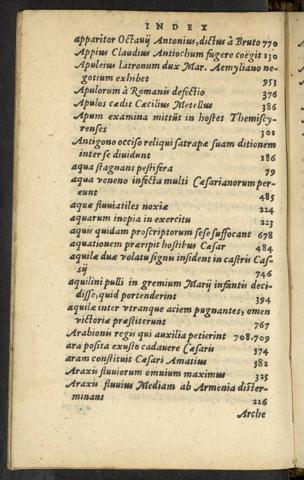 INDEX
apparitor Octauij Antonius, dictus à Bruto 770
Appius Claudius Antiochum fugere coëgit 130
Apuleius latronum dux Mar. Aemyliano ne-
gotium exhibet 953
Apulorum à Romanis defectio 376
Apulos cædit Cæcilius Metellus 386
Apum examina mittũt in hostes Themiscy-
renses 301
Antigono occiso reliqui satrapæ suam ditionem
inter se diuidunt 186
aqua stagnans pestifera 79
aqua veneno infecta multi Cæsarianorum per-
eunt 485
aquæ fluuiatiles noxiæ 224
aquarum inopia in exercitu 223
aquis quidam proscriptorum sese suffocant 678
aquationem præripit hostibus Cæsar 484
aquilæ duæ volatu signis insident in castris Cas-
sij 746
aquilini pulli in gremium Marij infantis deci-
disse, quid portenderint 394
aquilæ inter vtranque aciem pugnantes, omen
victoriæ præstiterunt 767
Arabionis regis qui auxilia petierint 708.709
ara posita exusto cadauere Cæsaris 574
aram constituit Cæsari Amatius 582
Araxis fluuiorum omnium maximus 325
Araxis fluuius Mediam ab Armenia dister-
minans 226
Arche